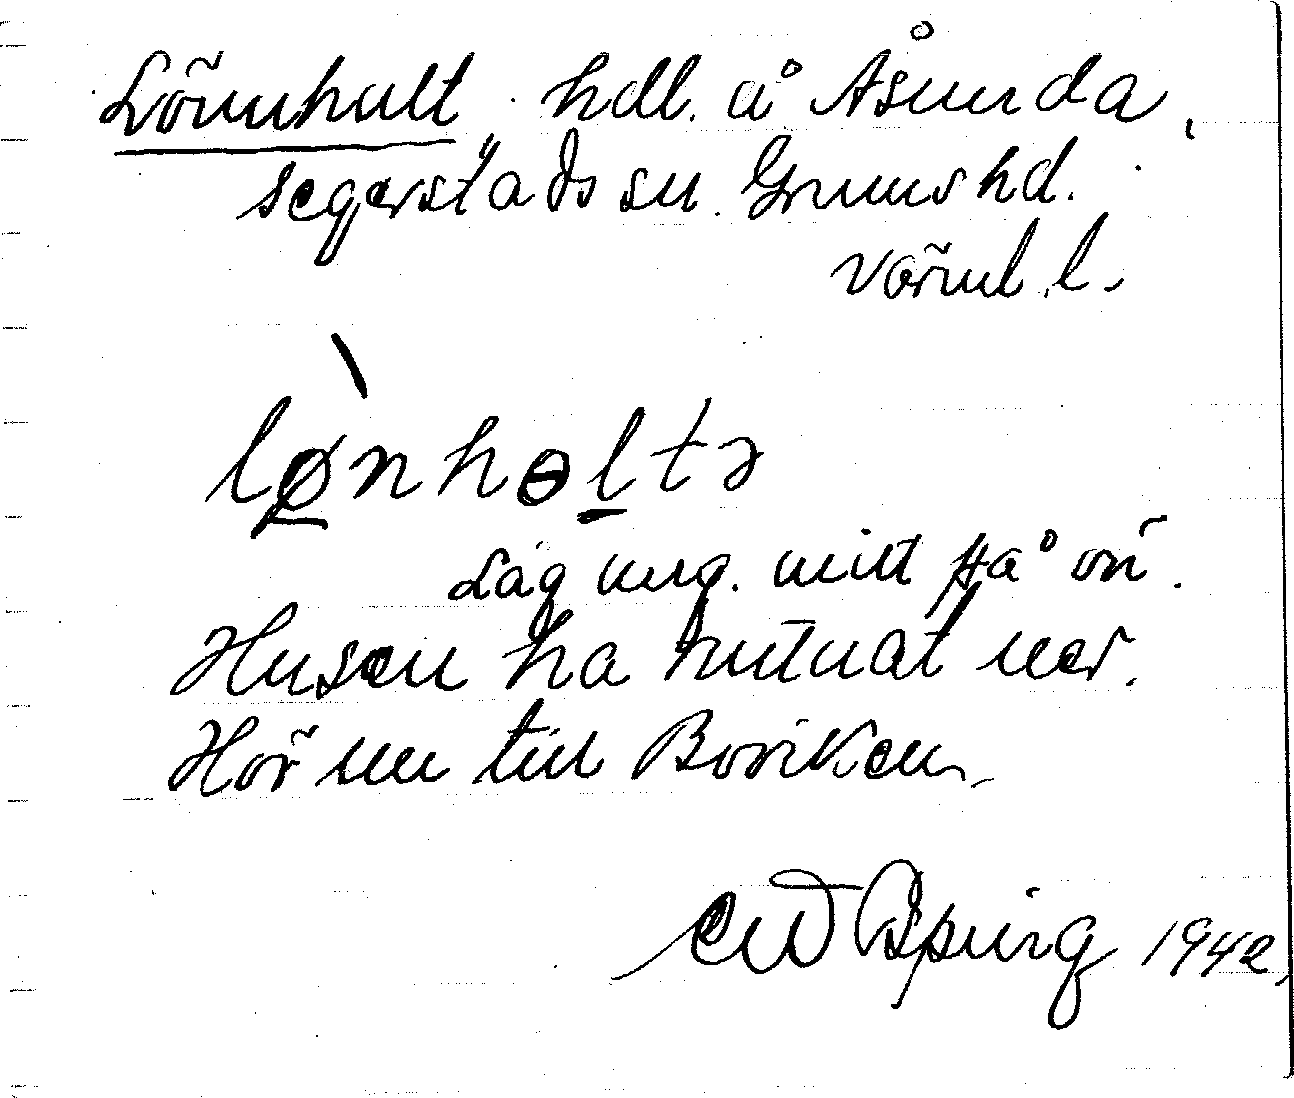 Lönnhult hdl. å Åsunda,
Segerstads sn. Grums hd.
Värml. l.
lø̀nhɵltə
Låg ung. mitt på ön.
Husen ha ruttnat ner.
Hör nu till Borviken.
1942